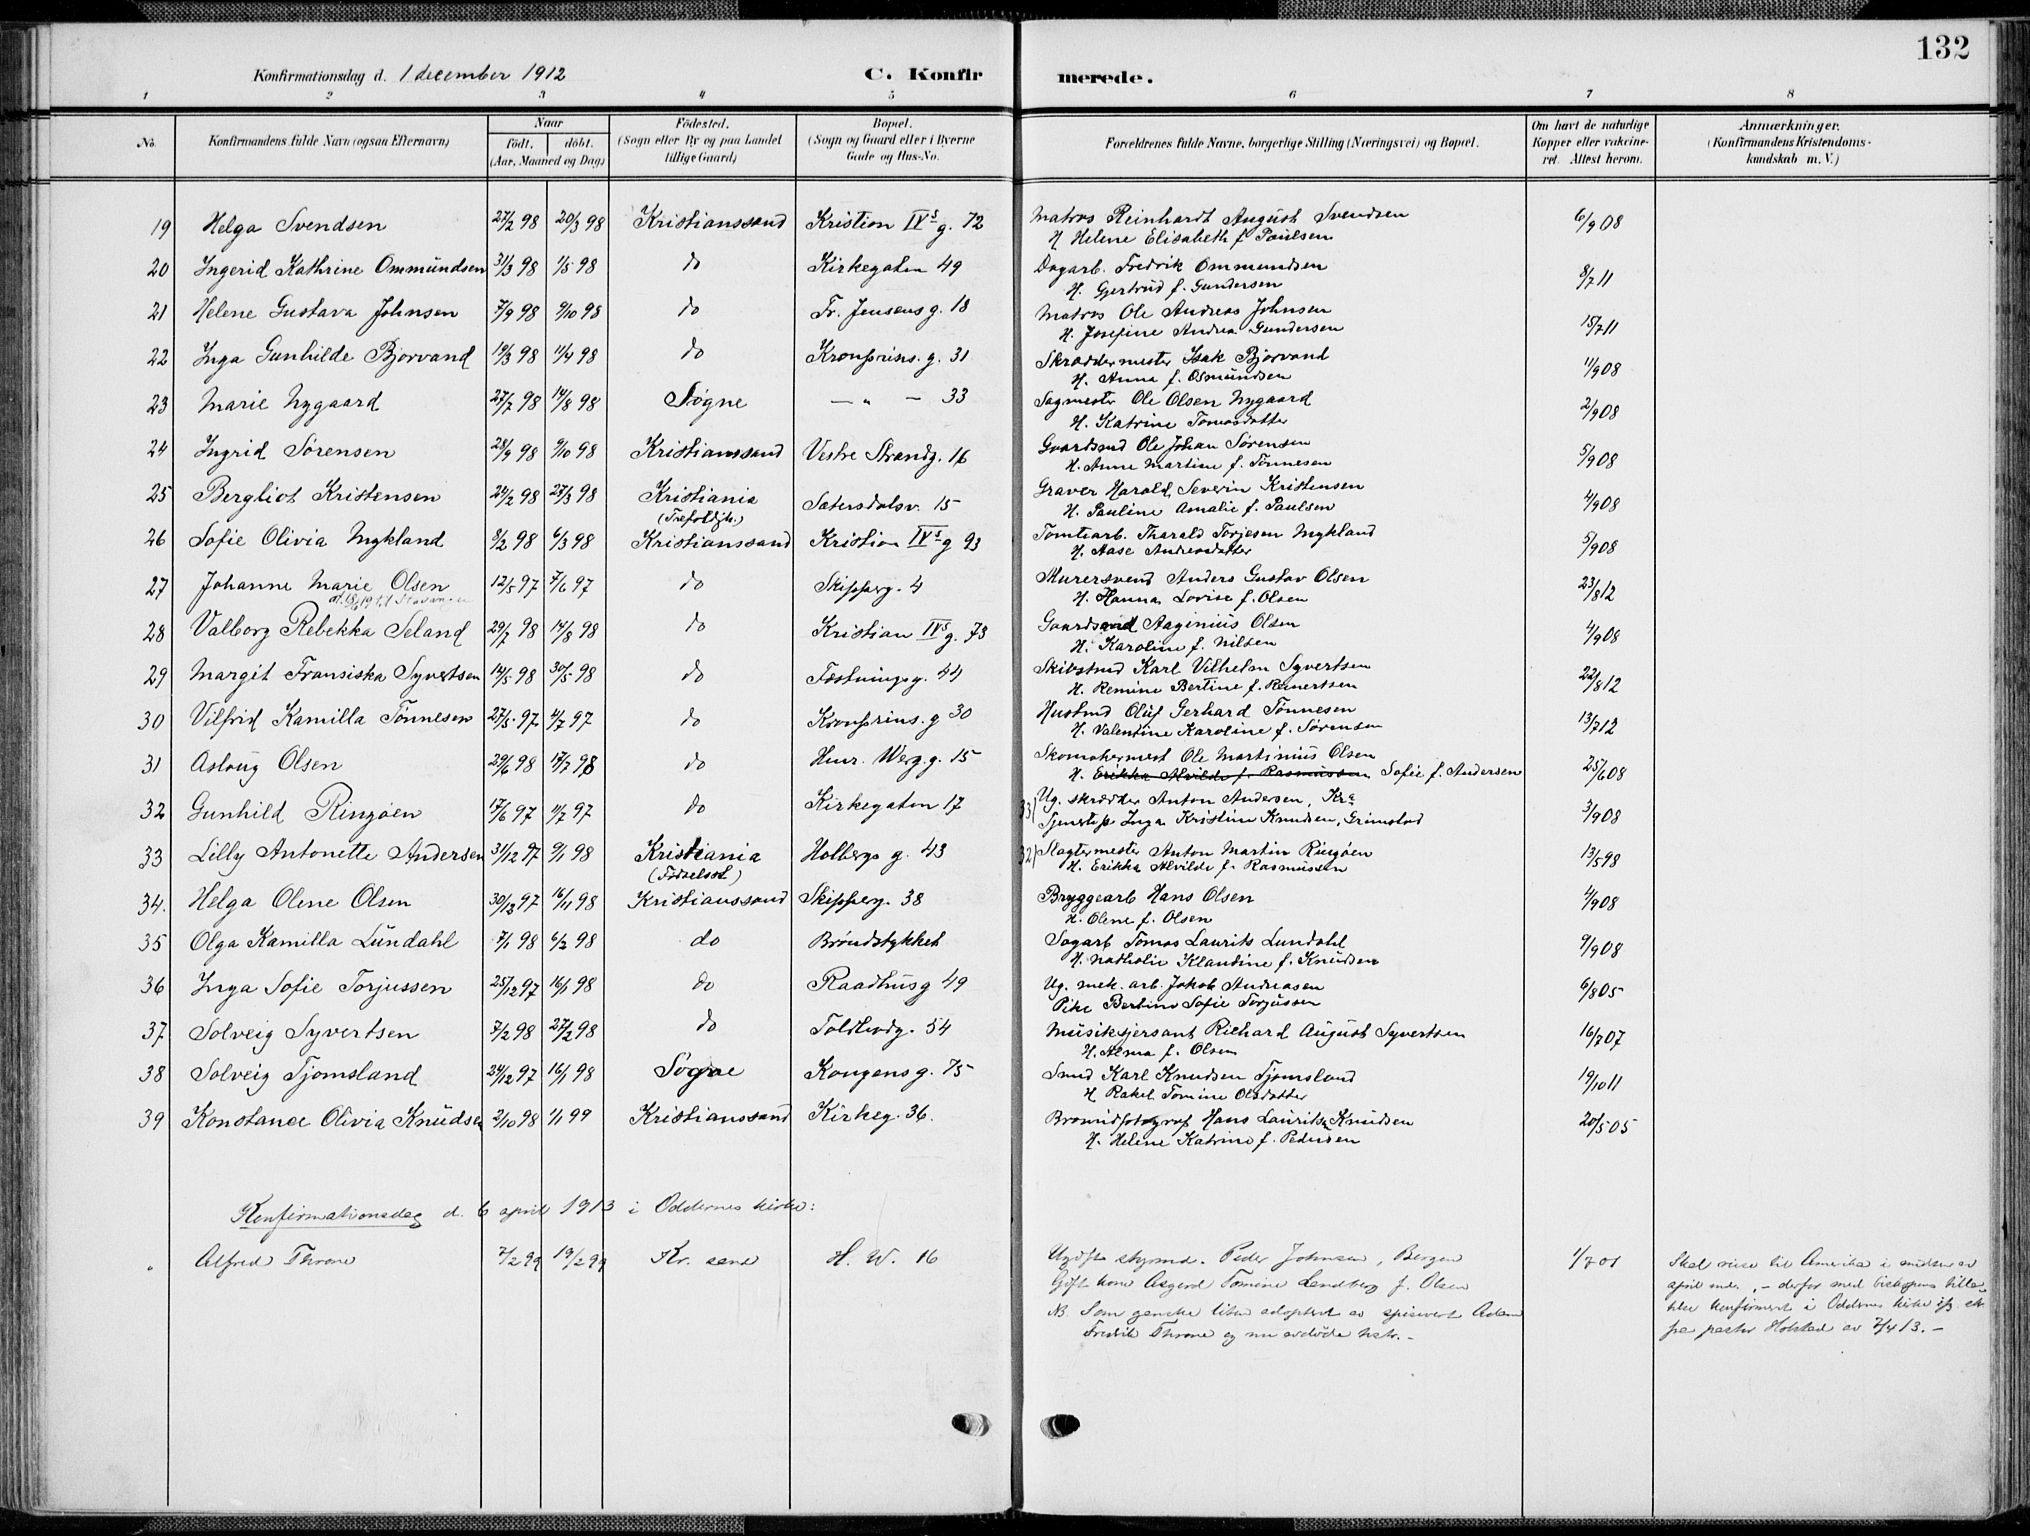 132
Konfirmationsdag d. 1 december 1912 C. Konfirmerede.
1 2 3 4 5 6 7 8
No. Konfirmandens fulde Navn (ogsaa Efternavn) Naar födt. döbt. (Aar, Maaned og Dag) Födested. (Sogn eller By og paa Landet tillige Gaard) Bopæl. (Sogn og Gaard eller i Byerne Gade og Hus-No. Forældrenes fulde Navne, borgerlige Stilling (Næringsvei) og Bopæl. Om havt de naturlige Kopper eller vakcineret. Attest herom. Anmærkninger. (Konfirmandens Kristendomskundskab m. V.)
19 Helga Svendsen 27/2 98 20/3 98 Kristianssand Kristian IVs g. 72 Matros Reinhardt August Svendsen 6/9 08
H. Helene Elisabeth f. Paulsen
20 Ingerid Kathrine Ommundsen 31/3 98 1/5 98 do Kirkegaten 49 Dagarb. Fredrik Ommundsen 8/7 11
H. Gjertrud f. Gundersen
21 Helene Gustava Johnsen 7/9 98 9/10 98 do Fr. Jensens g. 18 Matros Ole Andreas Johnsen 15/7 11
H. Josefine Andrea Gundersen
22 Inga Gunhilde Bjorvand 19/3 98 11/4 98 do Kronprins. g. 31 Skræddermester Isak Bjorvand 11/9 08
H. Anna f. Osmundsen
23 Marie Nygaard 27/7 98 14/8 98 Søgne — " — 33 Sagmester Ole Olsen Nygaard 2/9 08
H. Katrine Tomasdatter
24 Ingrid Sørensen 28/9 98 9/10 98 Kristianssand Vestre Strandg. 16 Gaardsmd Ole Johan Sørensen 5/9 08
H. Anne Martine f. Tønnesen
25 Bergliot Kristensen 24/2 98 27/3 98 Kristiania Sætersdalsv. 15 Graver Harald Severin Kristensen 4/9 08
(Trefoldjh.) H. Pauline Amalie f. Paulsen
26 Sofie Olivia Mykland 8/2 98 6/3 98 Kristianssand Kristian IVs g 93 Tomtearb. Tharald Torjesen Mykland 5/9 08
H. Aase Andreasdatter
27 Johanne Marie Olsen 12/5 97 7/6 97 do Skipperg. 4 Murersvend Anders Gustav Olsen 23/8 12
H. Hanna Lovise f. Olsen
28 Valborg Rebekka Seland 29/7 98 14/8 98 do Kristian IVs g. 73 Gaardsmd Aaginius Olsen 4/9 08
H. Karoline f. Nilsen
29 Margit Fransiska Syvertsen 14/5 98 30/5 98 do Fæstningsg. 44 Skibstmd Karl Vilhelm Syvertsen 22/8 12
H. Remine Bertine f. Reinertsen
30 Vilfrid Kamilla Tønnesen 27/5 97 4/7 97 do Kronprins. g 30 Hustmd Oluf Gerhard Tønnesen 13/7 12
H. Valentine Karoline f. Sørensen
31 Aslaug Olsen 29/6 98 17/7 98 do Henr. Werg. g. 15 Skomakermest Ole Martinius Olsen 25/6 08
H. Erikka Alvilde f. Rasmussen Sofie f. Andersen
32 Gunhild Ringøen 17/6 97 11/7 97 do Kirkegaten 17 33) Ug. skrædder Anton Andersen, Kra 3/9 08
Tjenestep. Inga Kristine Knudsen, Grimstad
33 Lilly Antonette Andersen 31/12 97 9/1 98 Kristiania Holbergs g. 43 32) Slagtermester Anton Martin Ringøen 13/5 98
(Fødselsst.) H. Erikka Alvilde f. Rasmussen
34. Helga Olene Olsen 30/12 97 16/1 98 Kristianssand Skipperg. 38 Bryggearb Hans Olsen 4/9 08
H. Olene f. Olsen
35 Olga Kamilla Lundahl 7/1 98 6/2 98 do Brøndstykket Sagarb Tomas Laurits Lundahl 9/9 08
H. Nathalie Klaudine f. Knudsen
36 Inga Sofie Torjussen 25/12 97 16/1 98 do Raadhusg 49 Ug. mek. arb. Jakob Andreasen 6/8 05
Pike Bertine Sofie Torjussen
37 Solveig Syvertsen 7/2 98 27/2 98 do Tolsbodg. 54 Musiksjersant Richard August Syvertsen 16/7 07
H. Alma f. Olsen
38 Solveig Tjomsland 24/12 97 16/1 98 Søgne Kongens g. 75 Smed Karl Knudsen Tjomsland 19/10 11
H. Rakel Tomine Olsdatter
39 Konstance Olivia Knudsen 2/10 98 1/1 99 Kristianssand Kirkeg. 36. Bromidfotograf Hans Laurits Knudsen 20/5 05
H. Helene Katrine f. Pedersen
Konfirmationsdag d. 6 april 1913 i Oddernes kirke:
" Alfred Throne 7/2 99 19/2 99 Kr. sand H. W. 16 Ugift styrmd. Peder Johnsen, Bergen 1/7 01 Skal reise til Amerika i midten av
Gift kone Asgerd Tomine Lundberg f. Olsen april md., - derfor med biskopens tilla-
NB. Som ganske liten adoptert av spisevert Adam telse konfirmert i Oddernes kirke
Fredrik Throne og nu avdøde hstr. - fra pastor Holsted av 7/4 13. -